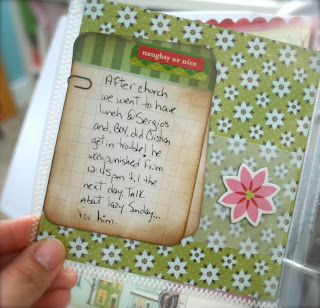 naughty or nice
After church
we went to have
lunch @ Sergio's
and, Boy, did Cristian
get in trouble! he
was punished from
12:45pm til the
next day. Talk
about lazy Sunday...
for him.